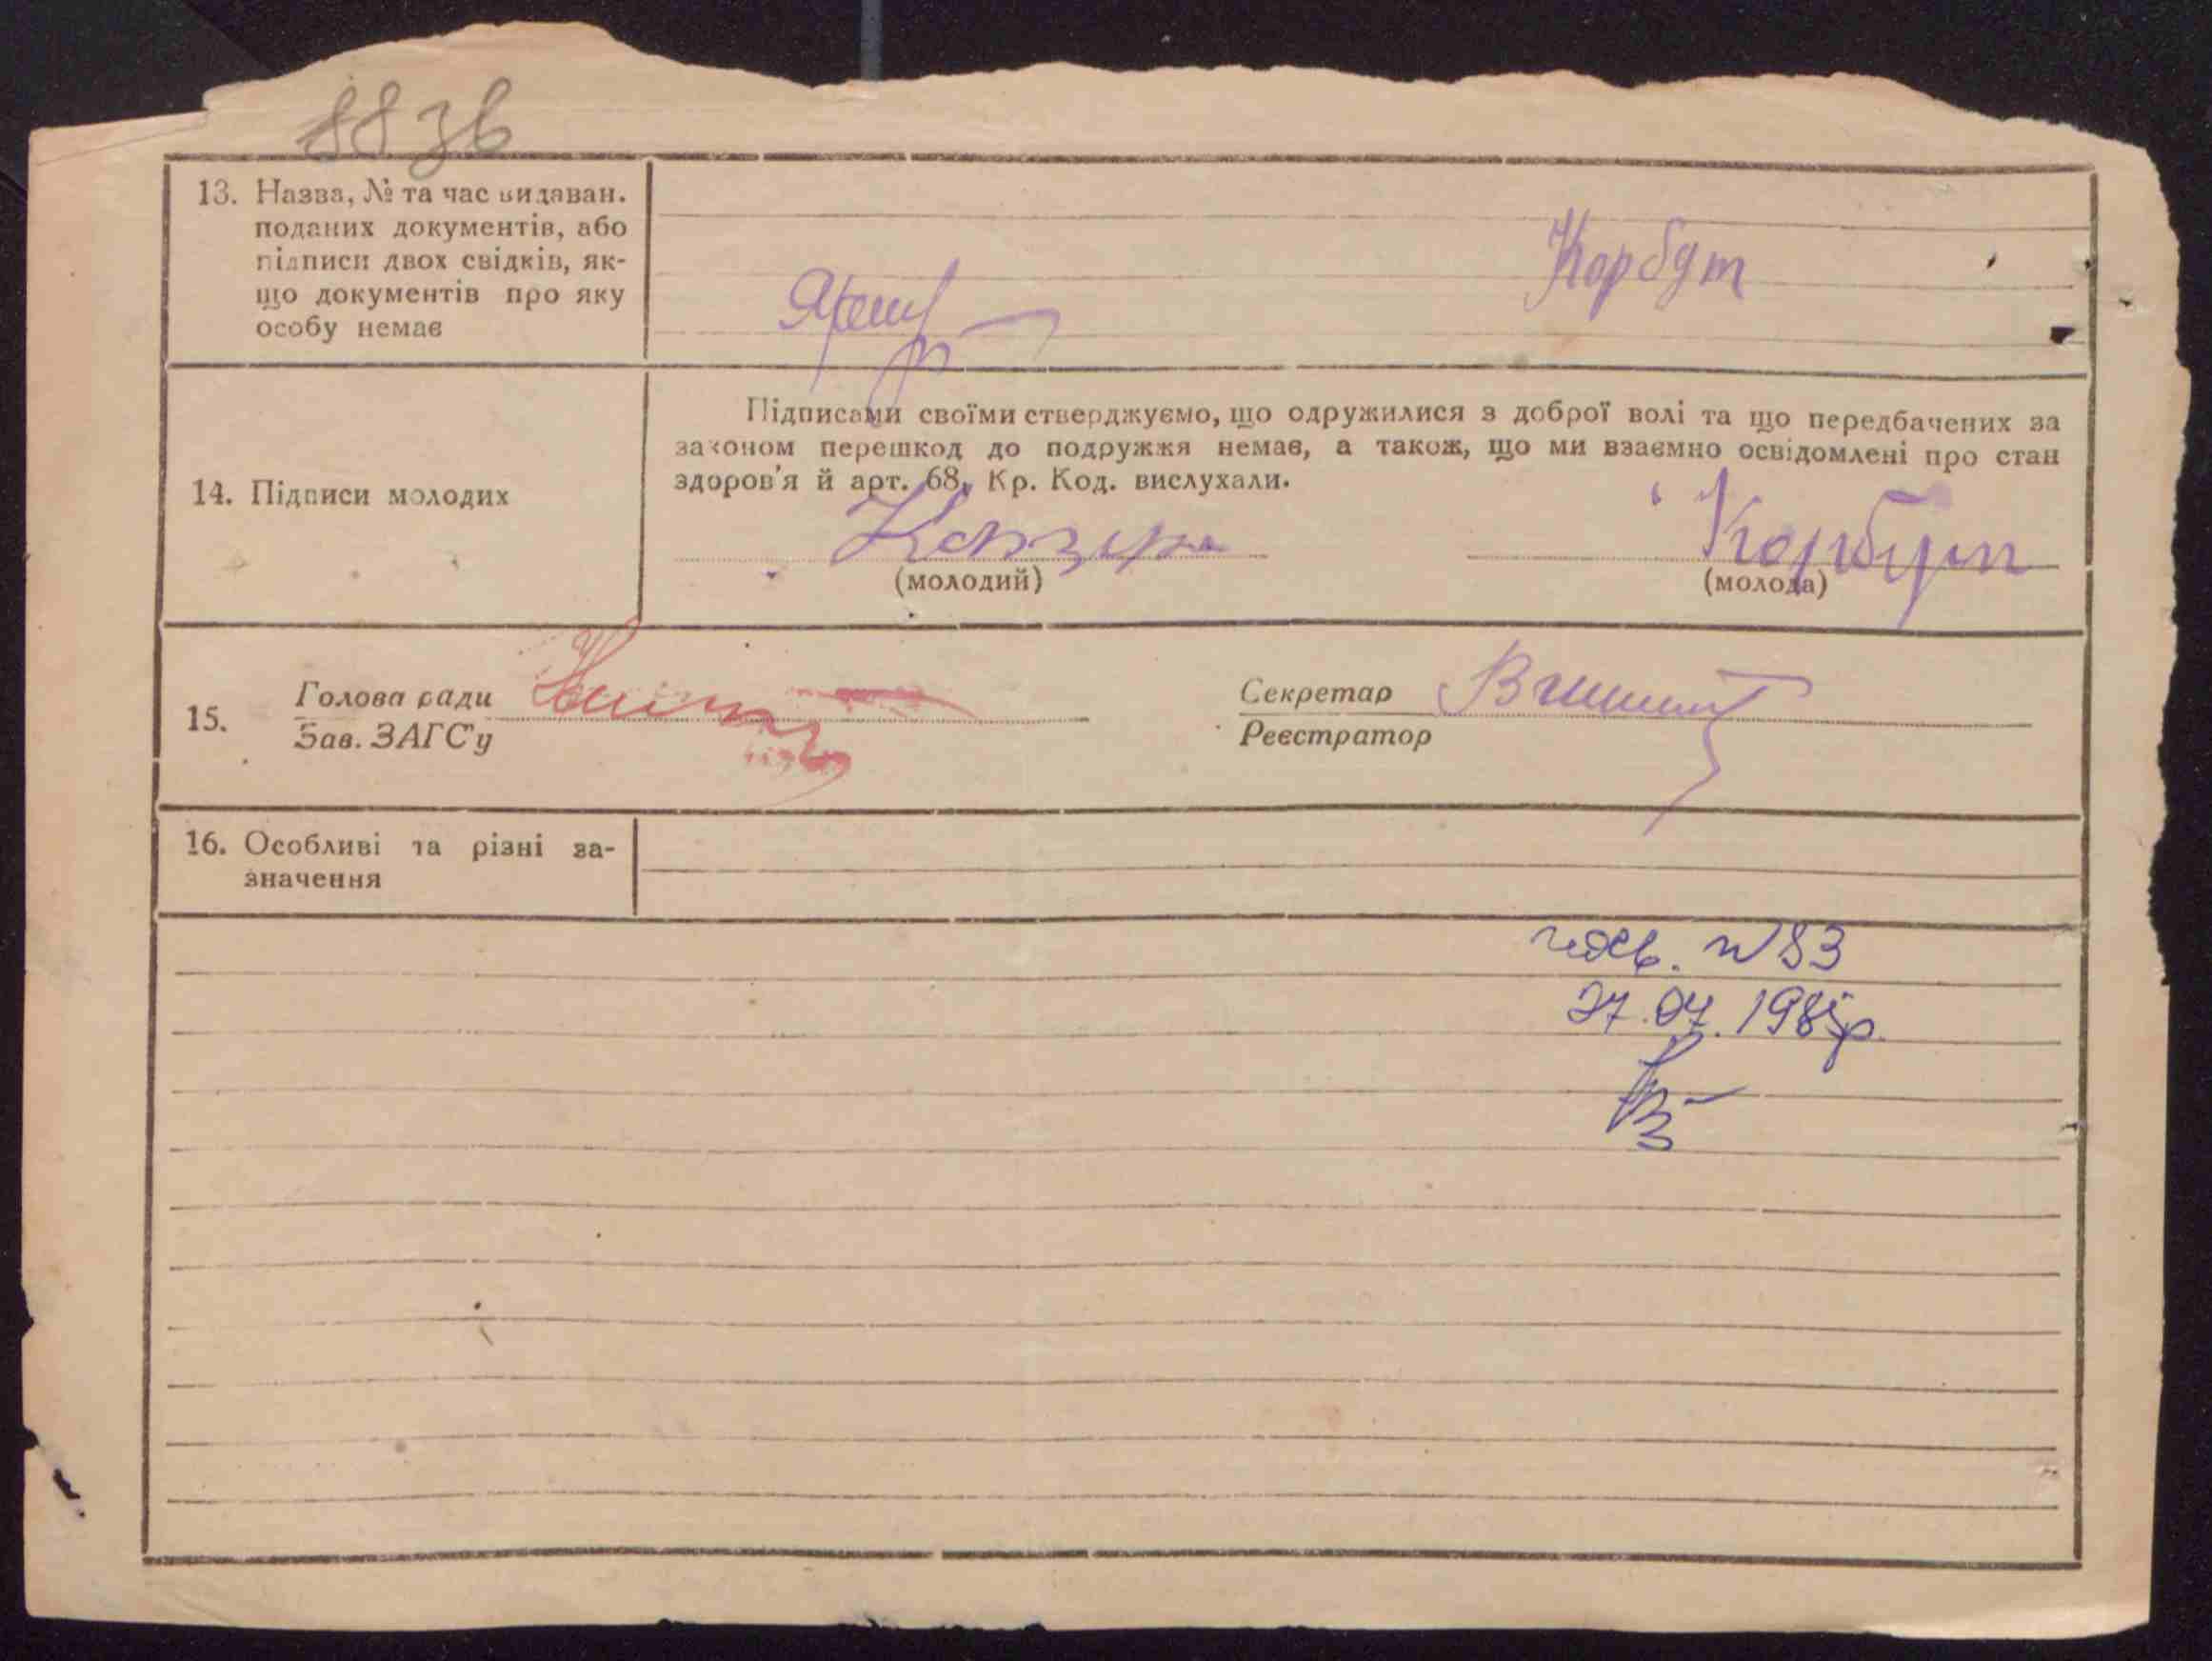 8836
13. Назва, № та час видаван.
поданих документів, або
підписи двох свідків, як-
що документів про яку
особу немає
Корбут
14. Підписи молодих
Підписами своїми стверджуємо, що одружилися з доброї волі та що передбачених за
законом перешкод до подружжя немає, а також, що ми взаємно освідомлені про стан
здоров'я й арт. 68, Кр. Код. вислухали.
Корбут
(молодий)
(молода)
15.
Голова ради
Зав. ЗАГС'у
Секретар
Реєстратор
16. Особливі та різні за-
значення
№83
27.04.1985р.